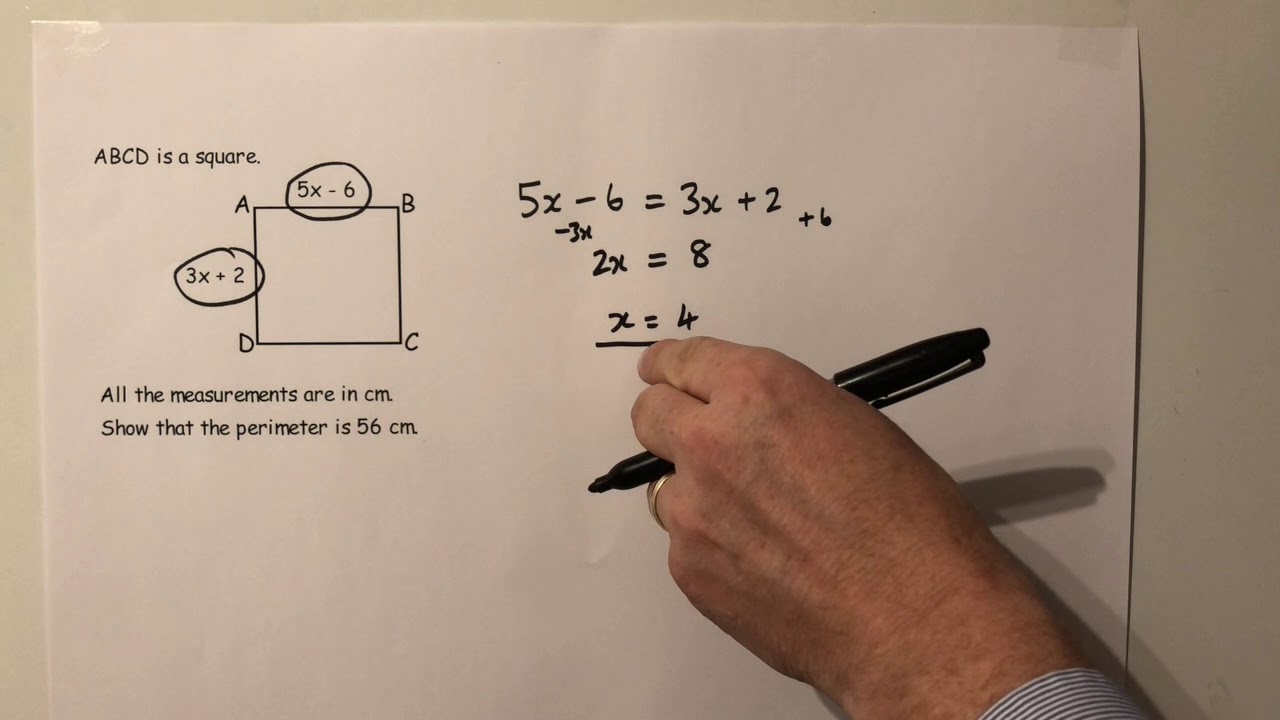 ABCD is a square.
5x - 6
A
B
3x + 2
D
C
All the measurements are in cm.
Show that the perimeter is 56 cm.
5x - 6 = 3x + 2
-3x
+6
2x = 8
x = 4